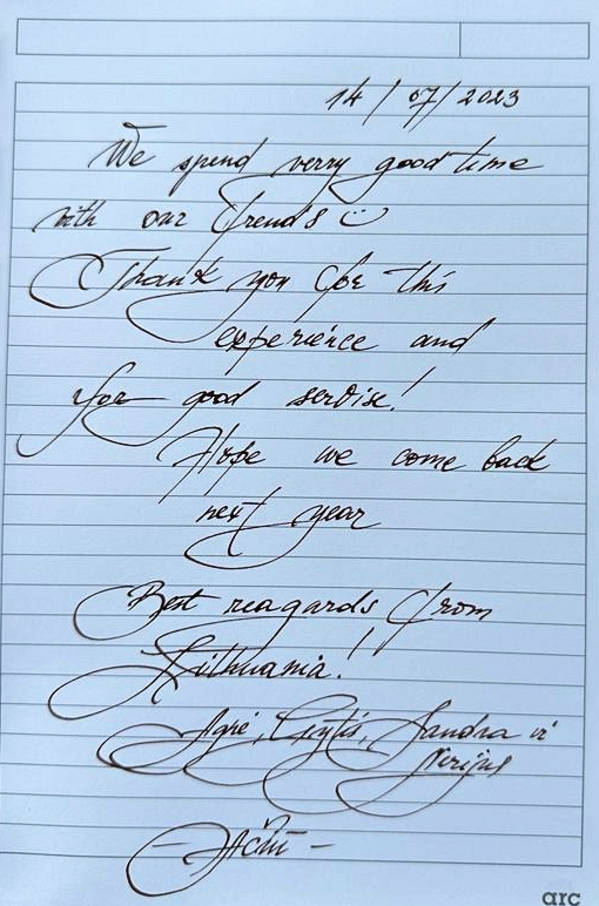 14/07/2023
We spend verry good time
with our frends
Thank you for this
experience and
for good servise!
Hope we come back
next year
Best reagards from
Lithuania!
Agnė, Gytis, Sandra ir
Nerijus
- Ačiū -
arc